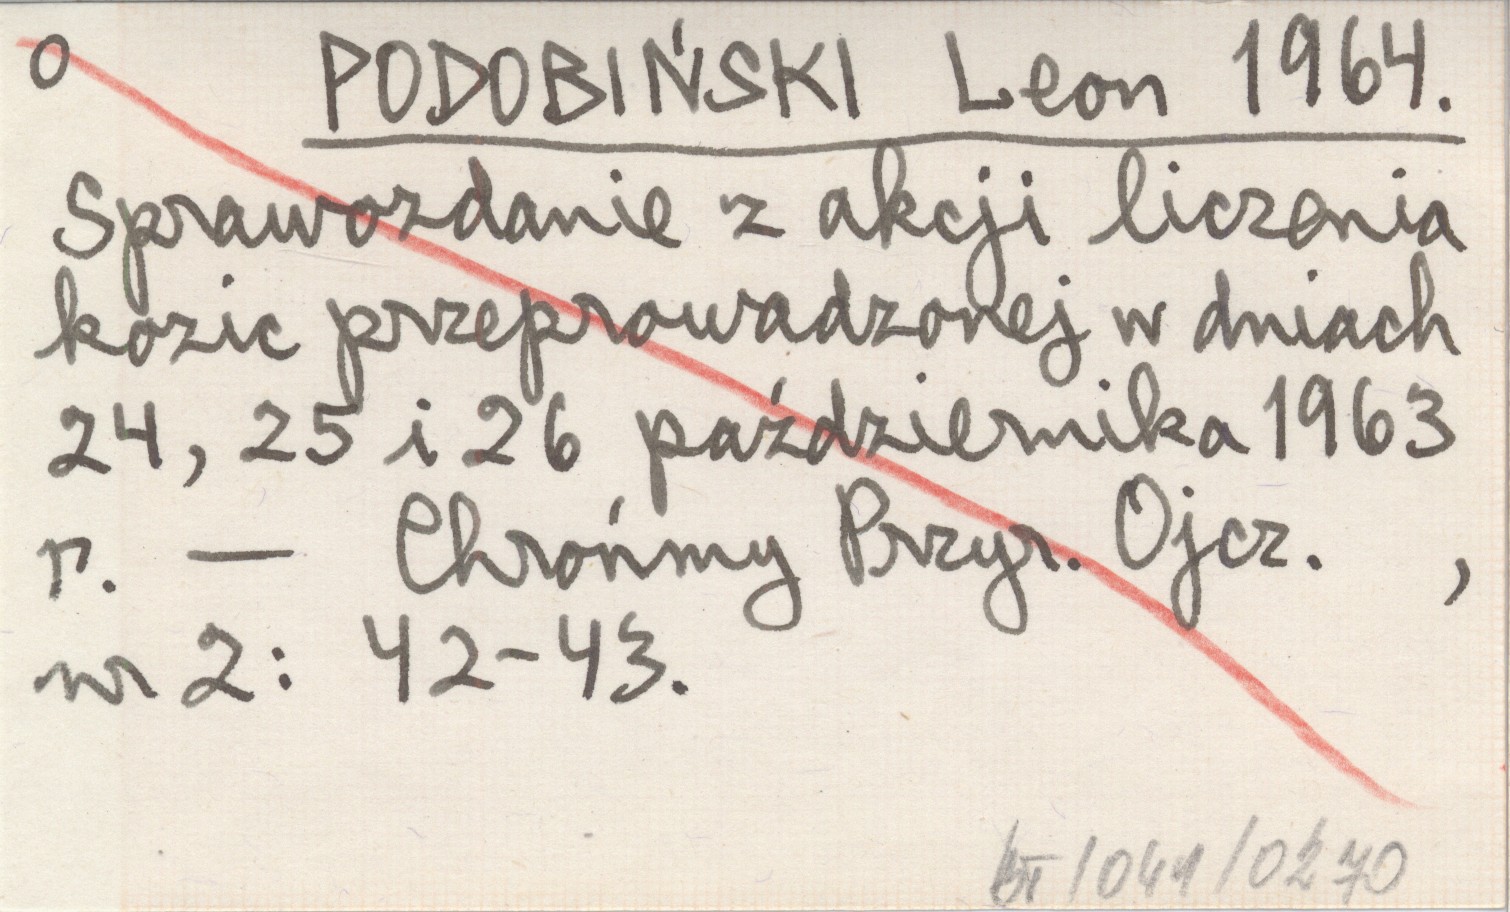 o PODOBIŃSKI Leon 1964.
Sprawozdanie z akcji liczenia
kozic przeprowadzonej w dniach
24, 25 i 26 października 1963
r. — Chrońmy Przyr. Ojcz. ,
nr 2: 42-43.
/041/0270